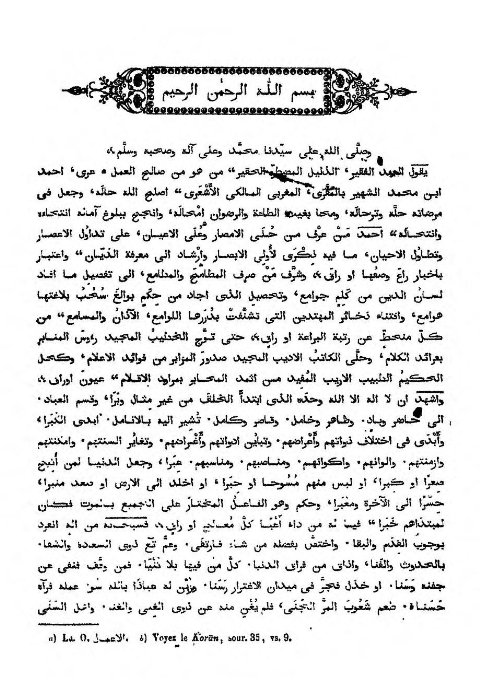 بسم اللّه الرحمٰن الرحيم
وصلّى الله على سيّدنا محمّد وعلى آله وصحبه وسلّم ۸
يقول العبد الفقير، الذليل المضطرّ الحقير" من هو من صالح العمل a عرى، احمد
ابن محمد الشهير بالمَقّرى، المغربى المالكى الأشْعَرى" اصلح الله حالَه، وجعل فى
مرضاته حلّه وترحالَه، ومحا بغيث الطاعة والرضوان إمْحالَه، وانجح ببلوغ آماله انتحاءه
وانتحالَه" أحمدُ مَنْ عرّف من حُلَى الامصار وعُلَى الاعيان، على تداوُل الاعصار
وتطاوُل الاحيان، ما فيه ذِكْرَى لأُولى الابصار وإرشاد الى معرفة الديّان" واعتبار
باخبار راعَ وصفُها او راق۸ وشرَّف مَنْ صرف المطامح والمطامع، الى تفصيل ما افاد
لسان الدين من كَلِمٍ جوامع، وتحصيل الذى اجاد من حِكَمٍ بوالغَ سُحُبُ بلاغتها
هوامع، واقتناء ذخائر المهتدين التى تشنّفتْ بدُرَرها اللوامع، الآذان والمسامع" من
كلّ منحطّ عن رتبة البراعة او راق۸ حتى تَوَّج الخطيبُ المجيد رءوسَ المنابر
بفرائد الكلام، وحلَّى الكاتبُ الاديب المجيد صدورَ المزابر من فوائد الاعلام، وكحل
الحكيمُ الطبيب الاريب المُفيد من اثمد المحابر بمراود الاقلام" عيونَ اوراق۸
واشهد ان لا اله الا الله وحدَه الذى ابتدأ الخلق من غير مثال وبرًا، وقسم العباد
الى حاضر وباد، وظاهر وخامل، وقاصر وكامل، تُشير اليه بالانامل، ابدى الكُبَرا،
وأَبْدَى فى اختلاف ذواتهم وأعْراضهم، وتبايُن ادواتهم وأغْراضهم، وتغايُر السنتهم، وامكنتهم
وازمنتهم، والوانهم، واكوانهم، ومناصبهم، ومناسبهم، عِبَرا، وجعل الدنيا لمن أُنيح
صغرا او كبرا، او لبس منهم مُسُوحا او حبرا، او اخلد الى الارض او صعد منبرا،
جِسْرًا الى الآخرة ومَعْبَرا، وحكم وهو الفاعل المختار على الجميع بالموت فكان
لمبتدأهم خَبَرا" فيما له من داء أَعْيَا كلَّ معالج او راق۸ فسبحانه من اله انفرد
بوجوب القِدَم والبقا، واختصّ بفضله من شاء فارتقى، وعمّ نوى السعادة والشقا،
بالحدوث والفنا، واذاق من فراق الدنيا، كلَّ مَنْ فيها بلا ثُنْيا، فمن وفّق فنفى عن
جفنه وَسَنا، او خذل فجرّ فى ميدان الاغترار رَسَنا، وزُيّن له عياذًا بالله سوء عمله فرآه
حَسَنا b، طعم شَعُوب المُرّ المجتنى، فلم يُغْنِ منه عن ذوى الفقر والغنى، واهل السَّنَى
a) La. O. الاعمال. b) Voyez le Korân, sour. 35, vs. 9.